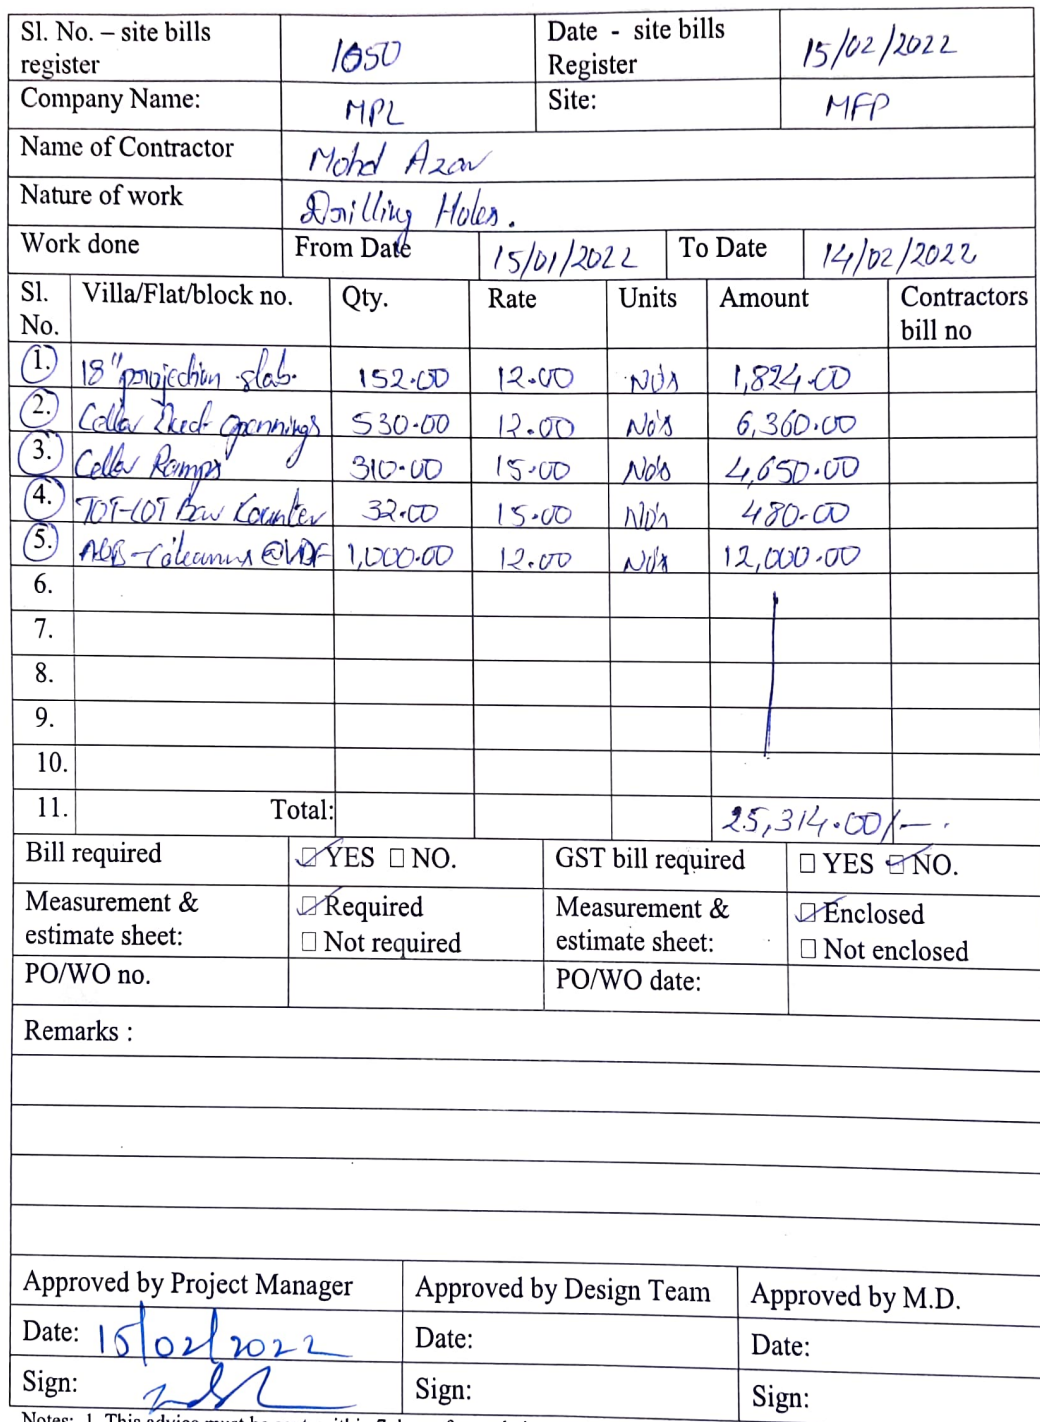 Sl. No. – site bills register 1050 Date - site bills Register 15/02/2022
Company Name: MPL Site: MFP
Name of Contractor Mohd Azar
Nature of work Drilling Holes.
Work done From Date 15/01/2022 To Date 14/02/2022
Sl. No. Villa/Flat/block no. Qty. Rate Units Amount Contractors bill no
1. 18" projection slab. 152.00 12.00 No's 1,824.00
2. Cellar Duct opennings 530.00 12.00 No's 6,360.00
3. Cellar Ramps 310.00 15.00 No's 4,650.00
4. TOT-LOT Bar Counter 32.00 15.00 No's 480.00
5. 1,000.00 12.00 No's 12,000.00
6.
7.
8.
9.
10.
11. Total: 25,314.00/—.
Bill required ☑ YES ☐ NO. GST bill required ☐ YES ☑ NO.
Measurement & estimate sheet: ☑ Required ☐ Not required Measurement & estimate sheet: ☑ Enclosed ☐ Not enclosed
PO/WO no. PO/WO date:
Remarks :
Approved by Project Manager Approved by Design Team Approved by M.D.
Date: 15/02/2022 Date: Date:
Sign: Sign: Sign: